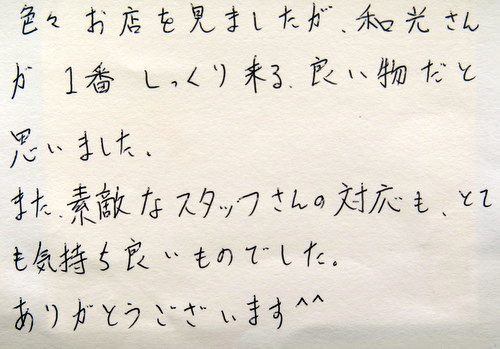 色々お店を見ましたが、和光さん
が1番しっくり来る、良い物だと
思いました、
また、素敵なスタッフさんの対応も、とて
も気持ち良いものでした。
ありがとうございます^^